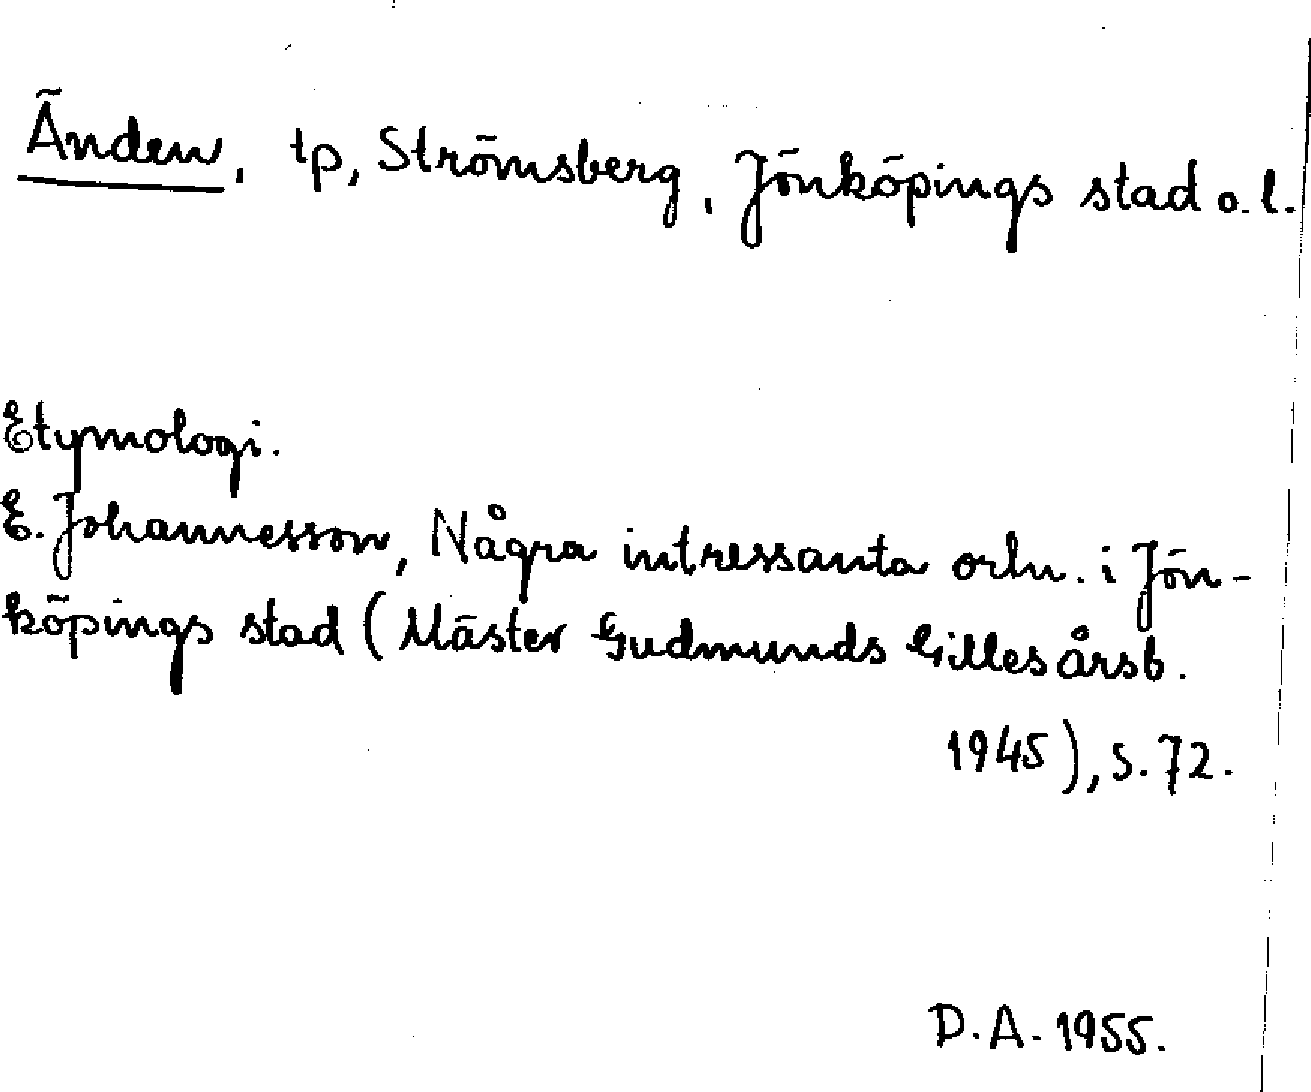 Änden, tp, Strömsberg, Jönköpings stad o. l.
Etymologi.
E. Johannesson, Några intressanta ortn. i Jön-
köpings stad (Mäster Gudmunds Gilles årsb.
1945), s. 72.
D. A. 1955.